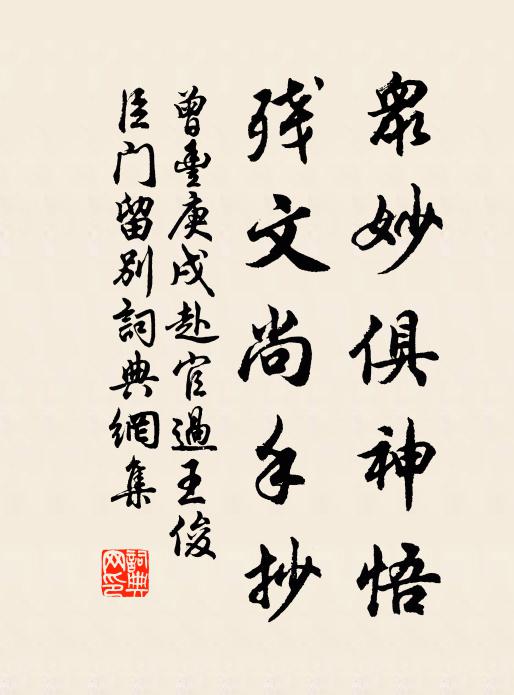 眾妙俱神悟
殘文尚手抄
曾豐庚戌赴官過王俊
臣门留别詞典網集
詞典網印